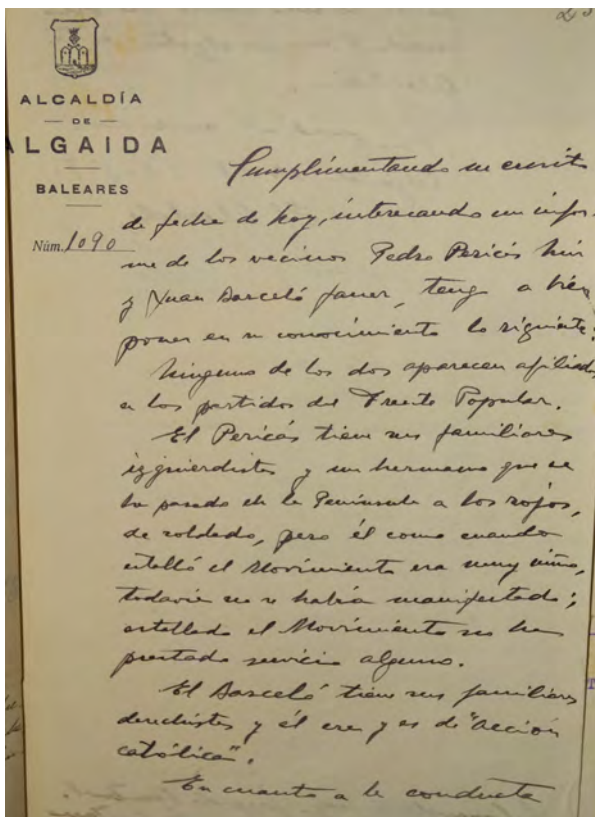 ALCALDÍA
DE
ALGAIDA
BALEARES
Núm. 1090
Cumplimentando su escrito
de fecha de hoy, interesando un infor-
me de los vecinos Pedro Pericás Mir
y Juan Barceló Janer, tengo a bien
poner en su conocimiento lo siguiente:
Ninguno de los dos aparecen afiliados
a los partidos del Frente Popular.
El Pericás tiene sus familiares
izquierdistas y un hermano que se
ha pasado en la Península a los rojos,
de soldado, pero él como cuando
estalló el Movimiento era muy niño,
todavía no se había manifestado;
estallado el Movimiento no ha
prestado servicio alguno.
El Barceló tiene sus familiares
derechistas y él era y es de "Acción
católica".
En cuanto a la conducta